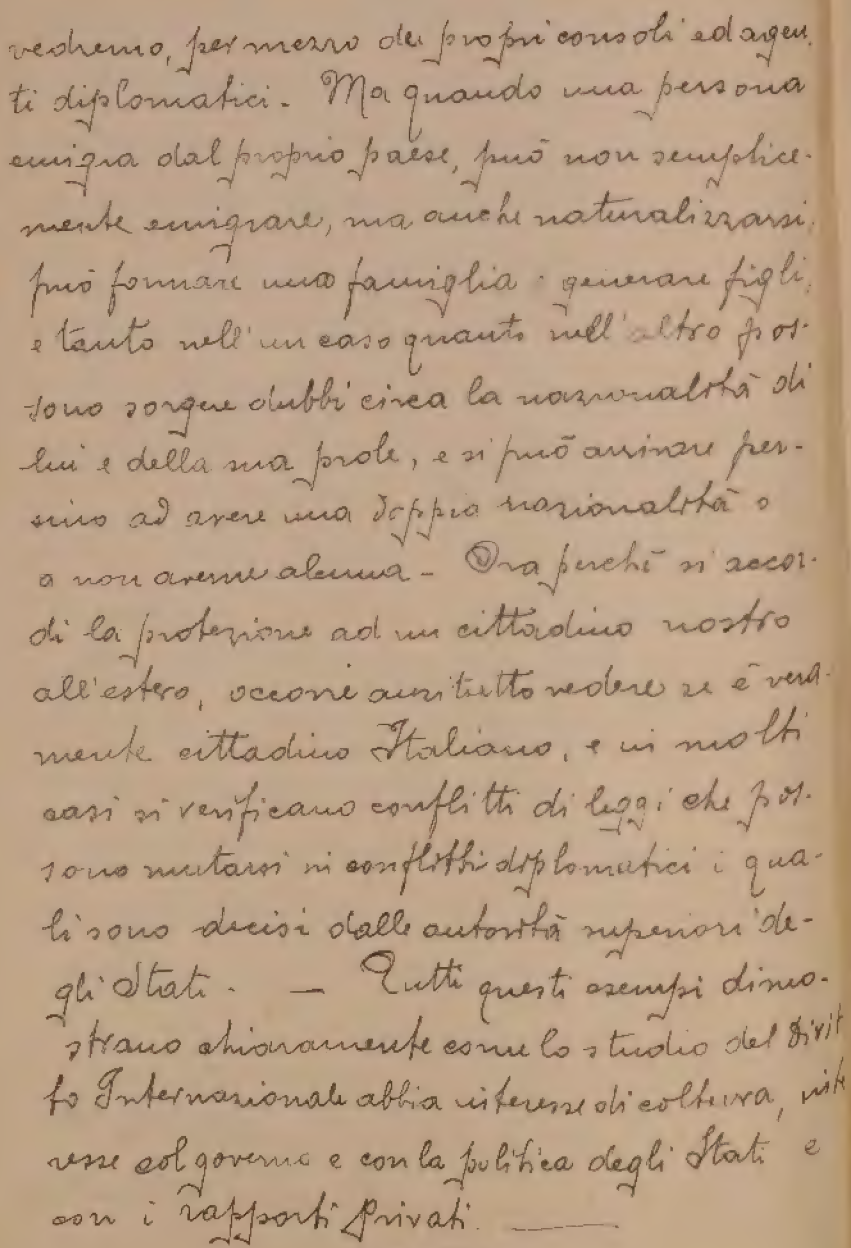 vedremo, per mezzo dei propri consoli ed agen.
ti diplomatici. Ma quando una persona
emigra dal proprio paese, può non semplice-
mente emigrare, ma anche naturalizzarsi,
può formare una famiglia · generare figli,
e tanto nell'un caso quanto nell'altro pos-
sono sorgere dubbi circa la nazionalità di
lui e della sua prole, e si può arrivare per-
sino ad avere una doppia nazionalità o
a non averne alcuna - Ora perchè si accor-
di la protezione ad un cittadino nostro
all'estero, occorre anzitutto vedere se è vera-
mente cittadino Italiano, e in molti
casi si verificano conflitti di leggi che pos-
sono mutarsi in conflitti diplomatici i qua-
li sono decisi dalle autorità superiori de-
gli Stati. — Tutti questi esempi dimo-
strano chiaramente come lo studio del Dirit
to Internazionale abbia interesse di coltura, inte
resse col governo e con la politica degli Stati e
con i rapporti Privati. —